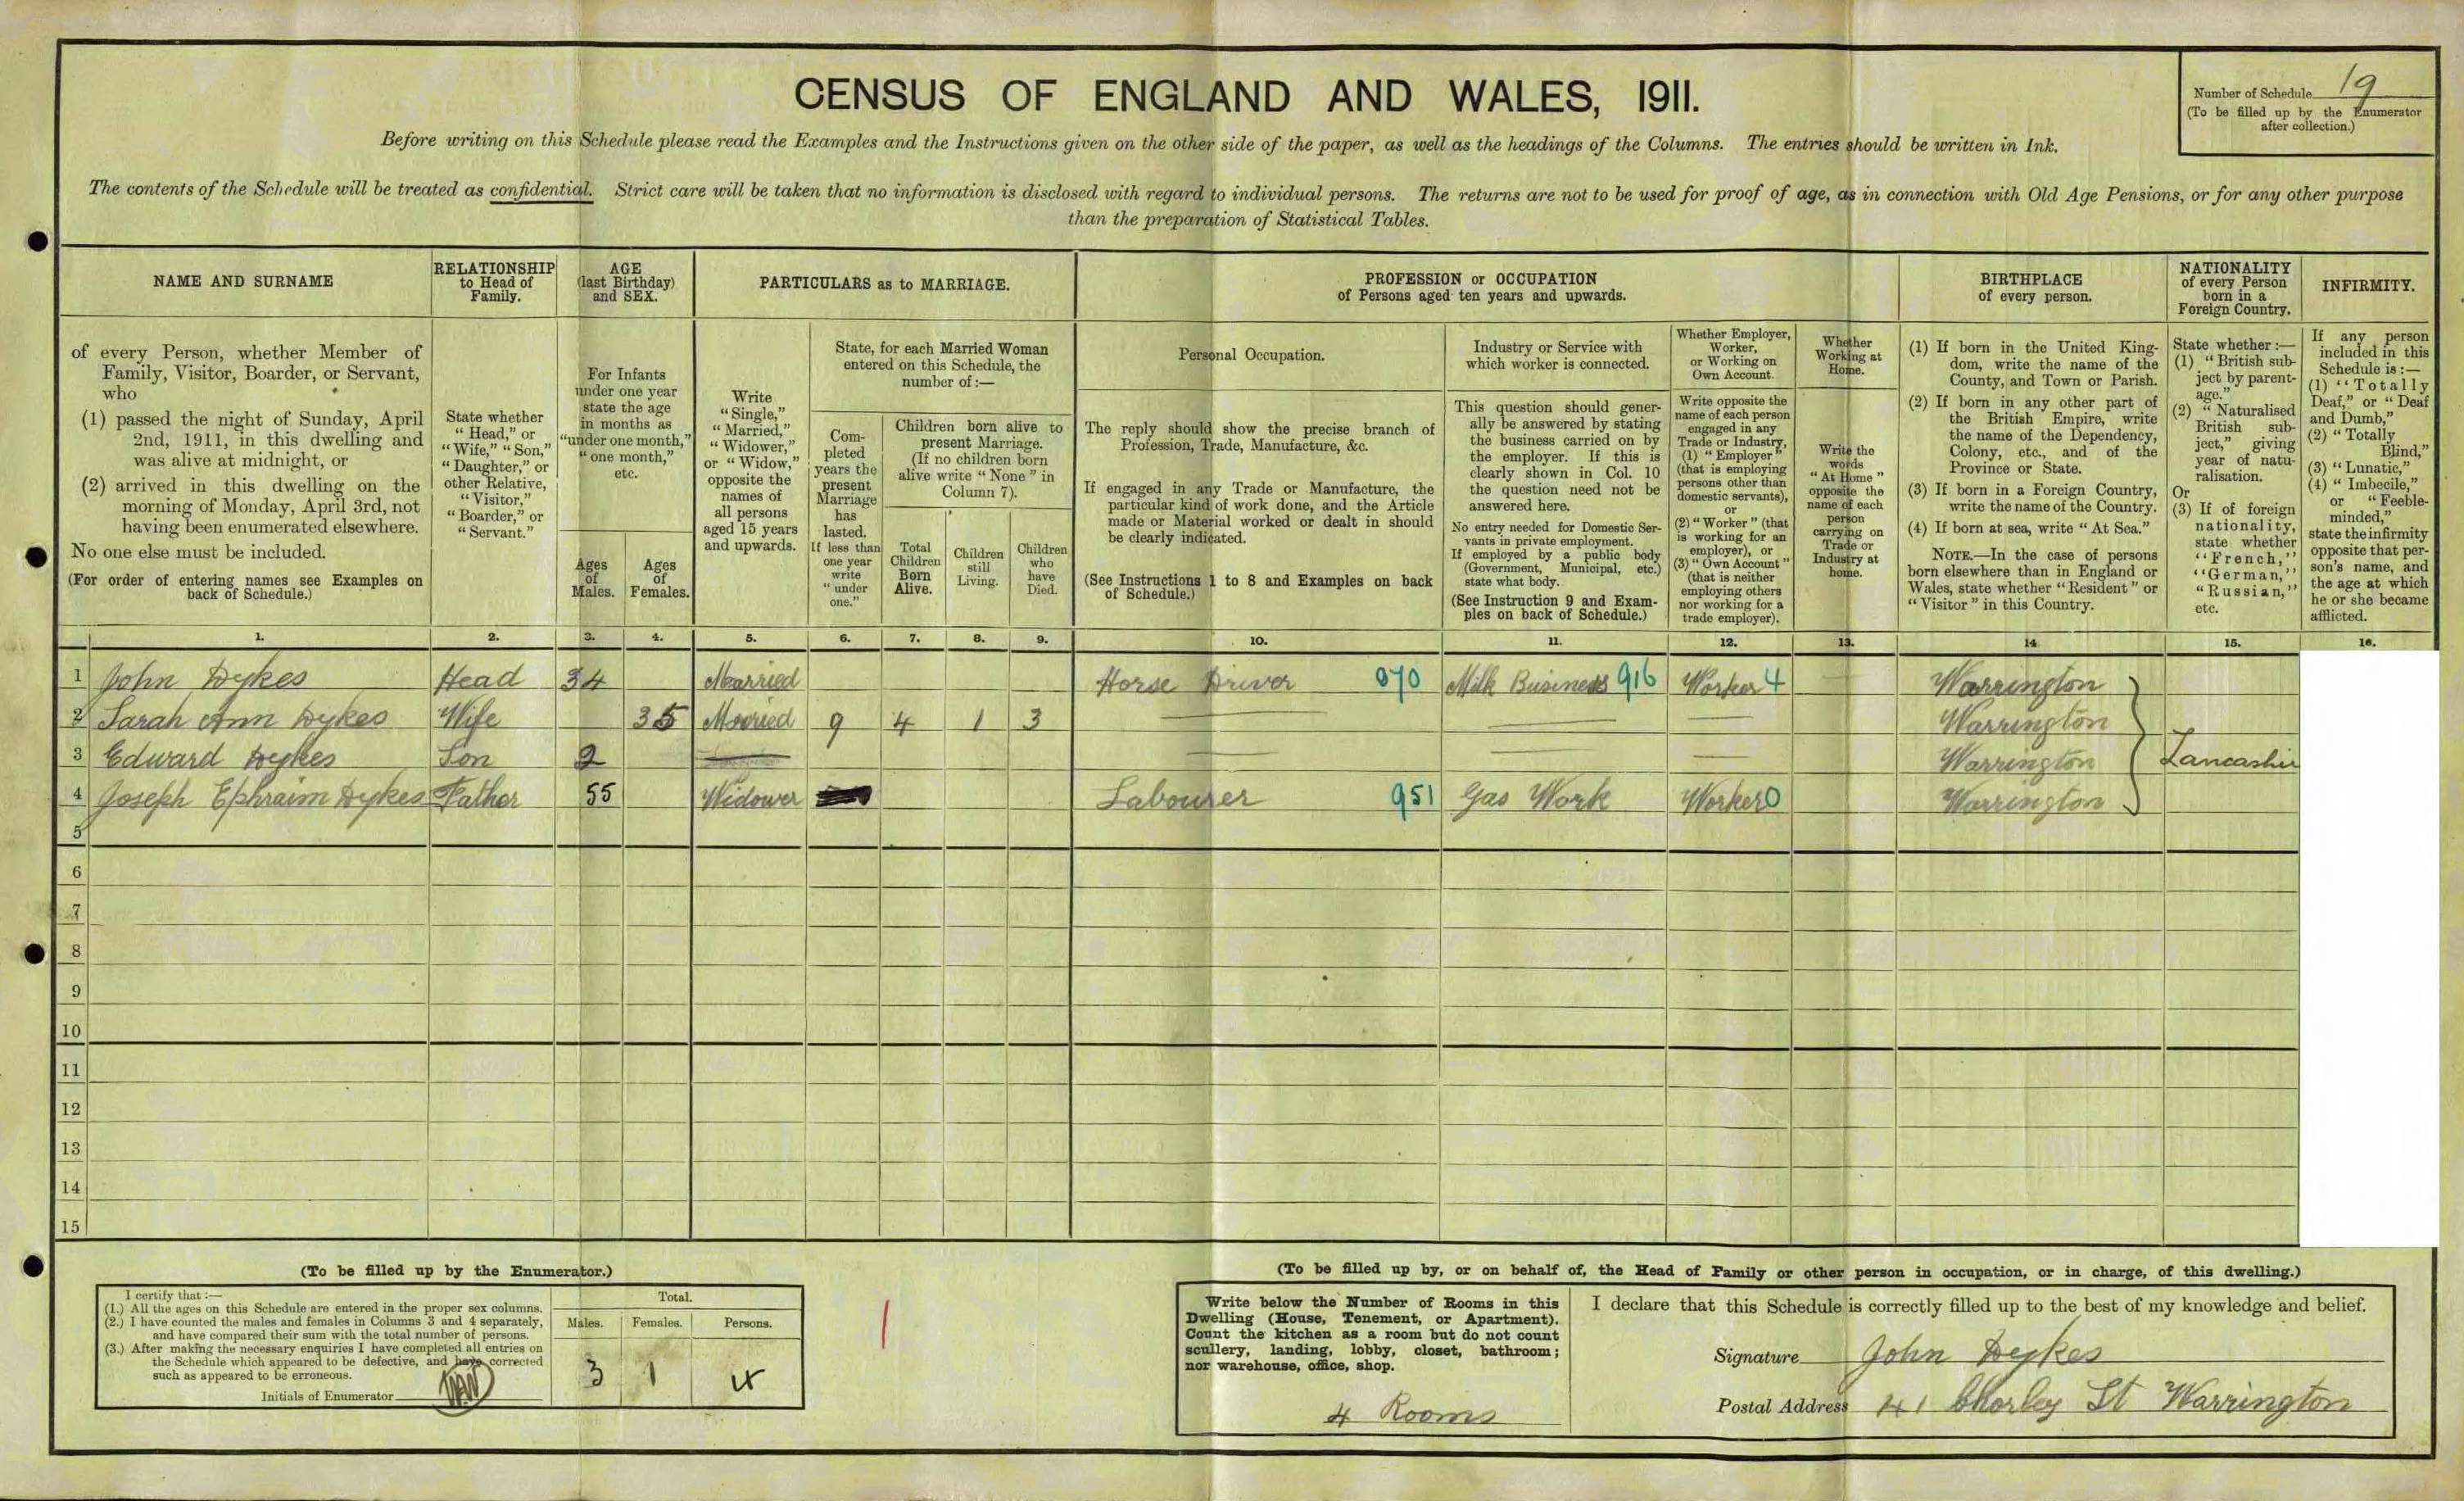 CENSUS OF ENGLAND AND WALES, 1911.
Number of Schedule 19
(To be filled up by the Enumerator
after collection.)
Before writing on this Schedule please read the Examples and the Instructions given on the other side of the paper, as well as the headings of the Columns. The entries should be written in Ink.
The contents of the Schedule will be treated as confidential. Strict care will be taken that no information is disclosed with regard to individual persons. The returns are not to be used for proof of age, as in connection with Old Age Pensions, or for any other purpose
than the preparation of Statistical Tables.
NAME AND SURNAME
of every Person, whether Member of
Family, Visitor, Boarder, or Servant,
who
(1) passed the night of Sunday, April
2nd, 1911, in this dwelling and
was alive at midnight, or
(2) arrived in this dwelling on the
morning of Monday, April 3rd, not
having been enumerated elsewhere.
No one else must be included.
(For order of entering names see Examples on
back of Schedule.)
RELATIONSHIP
to Head of
Family.
State whether
"Head," or
"Wife," "Son,"
"Daughter," or
other Relative,
"Visitor,"
"Boarder," or
"Servant."
AGE
(last Birthday)
and SEX.
For Infants
under one year
state the age
in months as
"under one month,"
"one month,"
etc.
Ages
of
Males.
Ages
of
Females.
PARTICULARS as to MARRIAGE.
Write
"Single,"
"Married,"
"Widower,"
or "Widow,"
opposite the
names of
all persons
aged 15 years
and upwards.
State, for each Married Woman
entered on this Schedule, the
number of:—
Com-
pleted
years the
present
Marriage
has
lasted.
If less than
one year
write
"under
one."
Children born alive to
present Marriage.
(If no children born
alive write "None" in
Column 7).
Total
Children
Born
Alive.
Children
still
Living.
Children
who
have
Died.
PROFESSION or OCCUPATION
of Persons aged ten years and upwards.
Personal Occupation.
The reply should show the precise branch of
Profession, Trade, Manufacture, &c.
If engaged in any Trade or Manufacture, the
particular kind of work done, and the Article
made or Material worked or dealt in should
be clearly indicated.
(See Instructions 1 to 8 and Examples on back
of Schedule.)
Industry or Service with
which worker is connected.
This question should gener-
ally be answered by stating
the business carried on by
the employer. If this is
clearly shown in Col. 10
the question need not be
answered here.
No entry needed for Domestic Ser-
vants in private employment.
If employed by a public body
(Government, Municipal, etc.)
state what body.
(See Instruction 9 and Exam-
ples on back of Schedule.)
Whether Employer,
Worker,
or Working on
Own Account.
Write opposite the
name of each person
engaged in any
Trade or Industry,
(1) "Employer"
(that is employing
persons other than
domestic servants),
or
(2) "Worker" (that
is working for an
employer), or
(3) "Own Account"
(that is neither
employing others
nor working for a
trade employer).
Whether
Working at
Home.
Write the
words
"At Home"
opposite the
name of each
person
carrying on
Trade or
Industry at
home.
BIRTHPLACE
of every person.
(1) If born in the United King-
dom, write the name of the
County, and Town or Parish.
(2) If born in any other part of
the British Empire, write
the name of the Dependency,
Colony, etc., and of the
Province or State.
(3) If born in a Foreign Country,
write the name of the Country.
(4) If born at sea, write "At Sea."
NOTE.—In the case of persons
born elsewhere than in England or
Wales, state whether "Resident" or
"Visitor" in this Country.
NATIONALITY
of every Person
born in a
Foreign Country.
State whether:—
(1) "British sub-
ject by parent-
age."
(2) "Naturalised
British sub-
ject," giving
year of natu-
ralisation.
Or
(3) If of foreign
nationality,
state whether
"French,"
"German,"
"Russian,"
etc.
INFIRMITY.
If any person
included in this
Schedule is:—
(1) "Totally
Deaf," or "Deaf
and Dumb,"
(2) "Totally
Blind,"
(3) "Lunatic,"
(4) "Imbecile,"
or "Feeble-
minded,"
state the infirmity
opposite that per-
son's name, and
the age at which
he or she became
afflicted.
1. 2. 3. 4. 5. 6. 7. 8. 9. 10. 11. 12. 13. 14 15. 16.
1 John Dykes Head 34 Married Horse Driver 070 Milk Business 916 Worker 4 Warrington
2 Sarah Ann Dykes Wife 35 Married 9 4 1 3 Warrington
3 Edward Dykes Son 2 Warrington Lancashir
4 Joseph Ephraim Dykes Father 55 Widower Labourer 951 Gas Work Worker 0 Warrington
5
6
7
8
9
10
11
12
13
14
15
(To be filled up by the Enumerator.)
I certify that:—
(1.) All the ages on this Schedule are entered in the proper sex columns.
(2.) I have counted the males and females in Columns 3 and 4 separately,
and have compared their sum with the total number of persons.
(3.) After making the necessary enquiries I have completed all entries on
the Schedule which appeared to be defective, and have corrected
such as appeared to be erroneous.
Initials of Enumerator
Total.
Males. Females. Persons.
3 1 4
(To be filled up by, or on behalf of, the Head of Family or other person in occupation, or in charge, of this dwelling.)
Write below the Number of Rooms in this
Dwelling (House, Tenement, or Apartment).
Count the kitchen as a room but do not count
scullery, landing, lobby, closet, bathroom;
nor warehouse, office, shop.
4 Rooms
I declare that this Schedule is correctly filled up to the best of my knowledge and belief.
Signature John Dykes
Postal Address 41 Chorley St Warrington